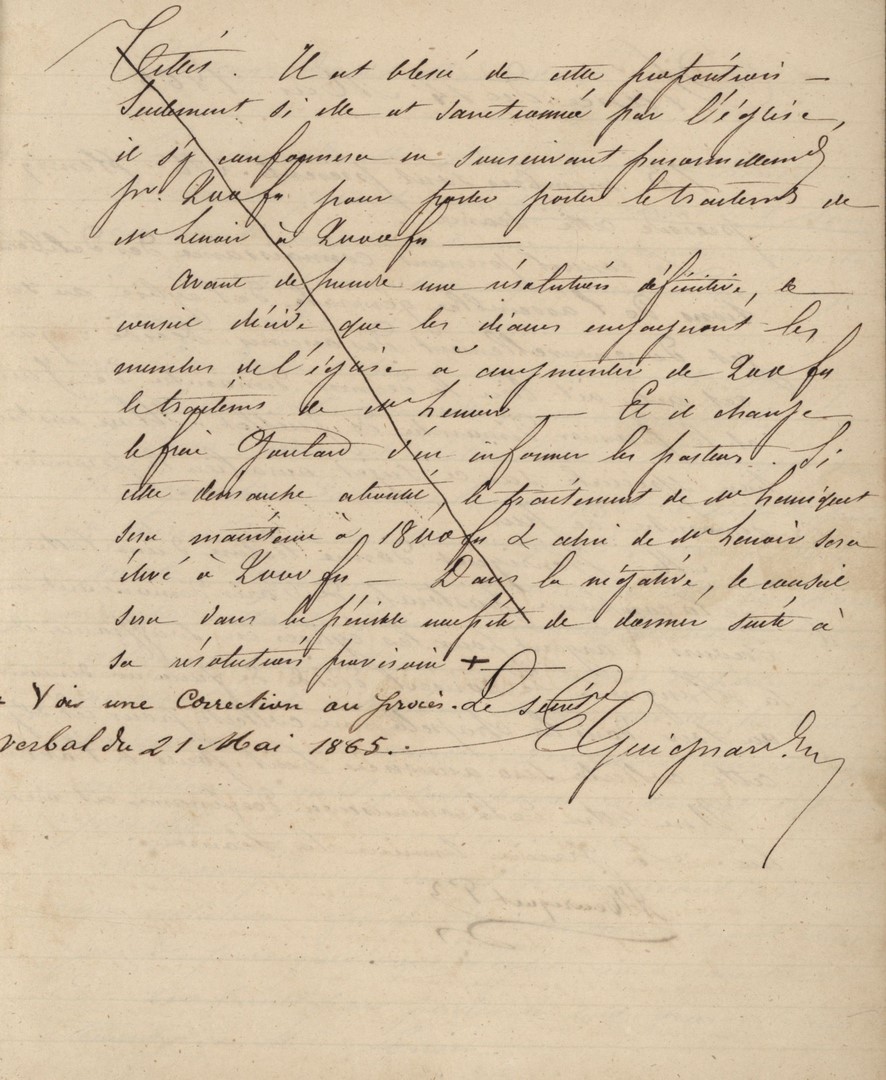 Cettés. Il est blessé de cette proposition —
Seulement si elle est sanctionnée par l'église,
il s'y conformera en souscrivant personnellement
pr. 200 frs pour porter porter le traitement de
Mr Lenoir à 2000 frs —
Avant de prendre une résolution définitive, le
conseil décide que les diacres engageront les
membres de l'église à augmenter de 200 frs
le traitement de Mr Lenoir — Et il charge
le frère Goulard d'en informer les pasteurs. Si
cette démarche aboutit, le traitement de Mr Henriquet
sera maintenu à 1800 frs & celui de Mr Lenoir sera
élevé à 2000 frs — Dans la négative, le conseil
sera dans la pénible nécessité de donner suite à
sa résolution provisoire +
+ Voir une correction au procès-
verbal du 21 Mai 1865.
Le Secrét.re
Guignard